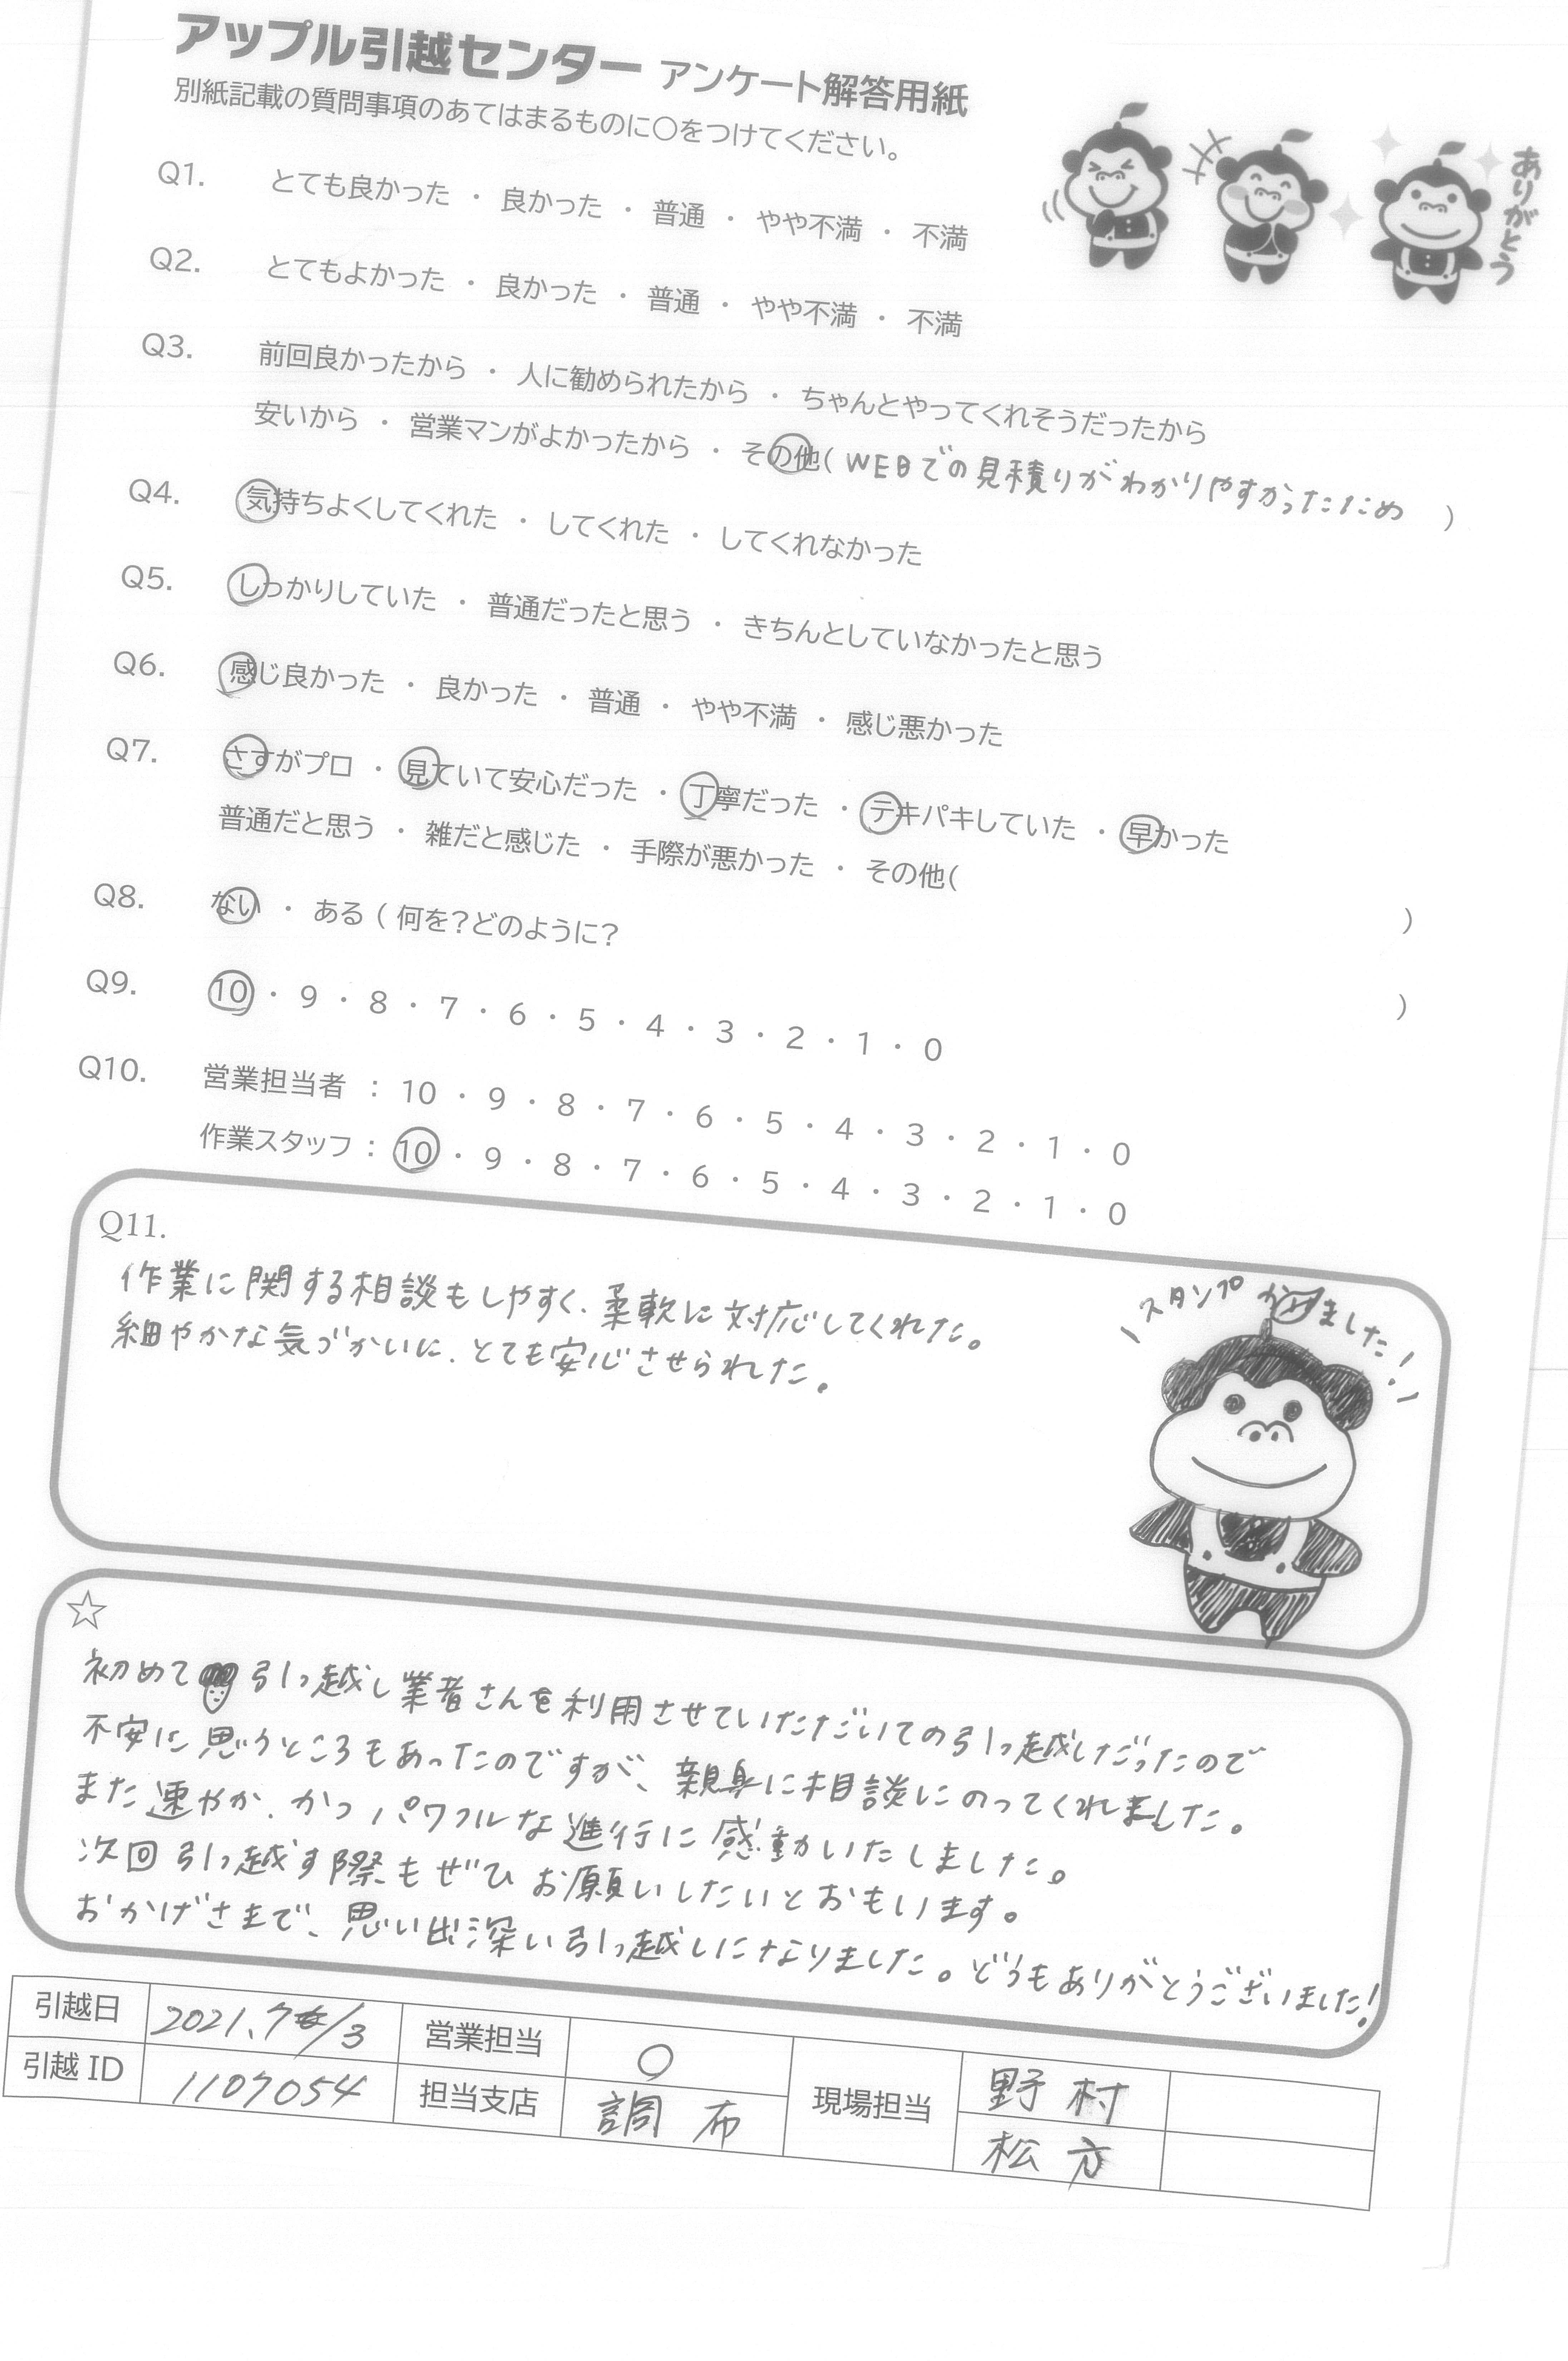 アップル引越センター アンケート解答用紙
別紙記載の質問事項のあてはまるものに○をつけてください。
ありがとう
Q1. とても良かった ・ 良かった ・ 普通 ・ やや不満 ・ 不満
Q2. とてもよかった ・ 良かった ・ 普通 ・ やや不満 ・ 不満
Q3. 前回良かったから ・ 人に勧められたから ・ ちゃんとやってくれそうだったから
安いから ・ 営業マンがよかったから ・ その他( WEBでの見積りがわかりやすかったため )
Q4. 気持ちよくしてくれた ・ してくれた ・ してくれなかった
Q5. しっかりしていた ・ 普通だったと思う ・ きちんとしていなかったと思う
Q6. 感じ良かった ・ 良かった ・ 普通 ・ やや不満 ・ 感じ悪かった
Q7. さすがプロ ・ 見ていて安心だった ・ 丁寧だった ・ テキパキしていた ・ 早かった
普通だと思う ・ 雑だと感じた ・ 手際が悪かった ・ その他( )
Q8. ない ・ ある ( 何を?どのように? )
Q9. 10 ・ 9 ・ 8 ・ 7 ・ 6 ・ 5 ・ 4 ・ 3 ・ 2 ・ 1 ・ 0
Q10. 営業担当者 : 10 ・ 9 ・ 8 ・ 7 ・ 6 ・ 5 ・ 4 ・ 3 ・ 2 ・ 1 ・ 0
作業スタッフ : 10 ・ 9 ・ 8 ・ 7 ・ 6 ・ 5 ・ 4 ・ 3 ・ 2 ・ 1 ・ 0
Q11.
作業に関する相談もしやすく、柔軟に対応してくれた。
細やかな気づかいに、とても安心させられた。
スタンプ かいました!
☆
初めて引っ越し業者さんを利用させていただいての引っ越しだったので
不安に思うところもあったのですが、親身に相談にのってくれました。
また速やか、かつパワフルな進行に感動いたしました。
次回引っ越す際もぜひお願いしたいとおもいます。
おかげさまで、思い出深い引っ越しになりました。どうもありがとうございました!
引越日 2021.7/3 営業担当 ○ 現場担当 野村
引越 ID 1107054 担当支店 調布 松方